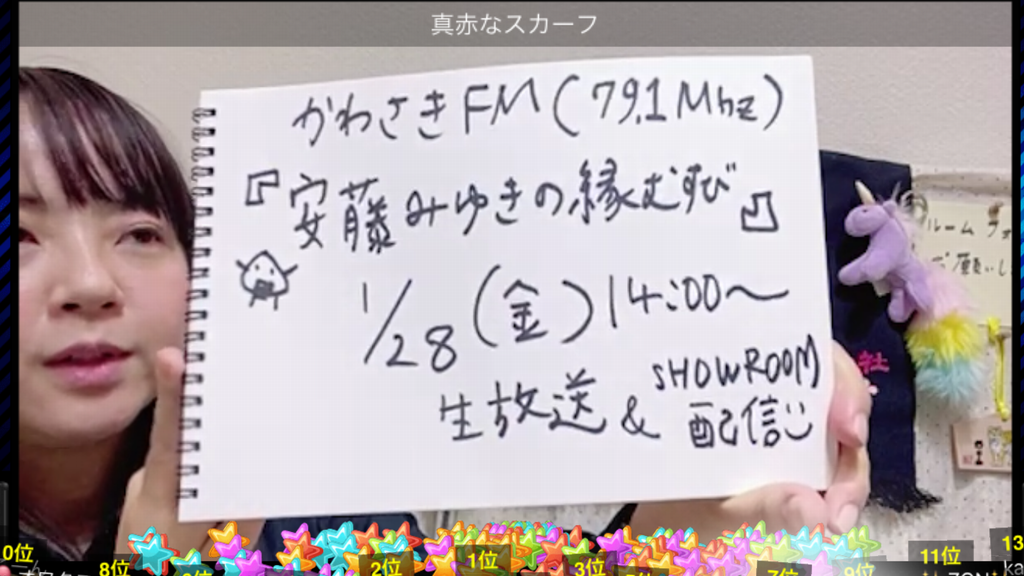 真赤なスカーフ
かわさきFM(79.1Mhz)
『安藤みゆきの縁むすび』
1/28(金)14:00〜
生放送&SHOWROOM配信
ルーム
社
0位
8位
2位
1位
3位
9位
11位
13